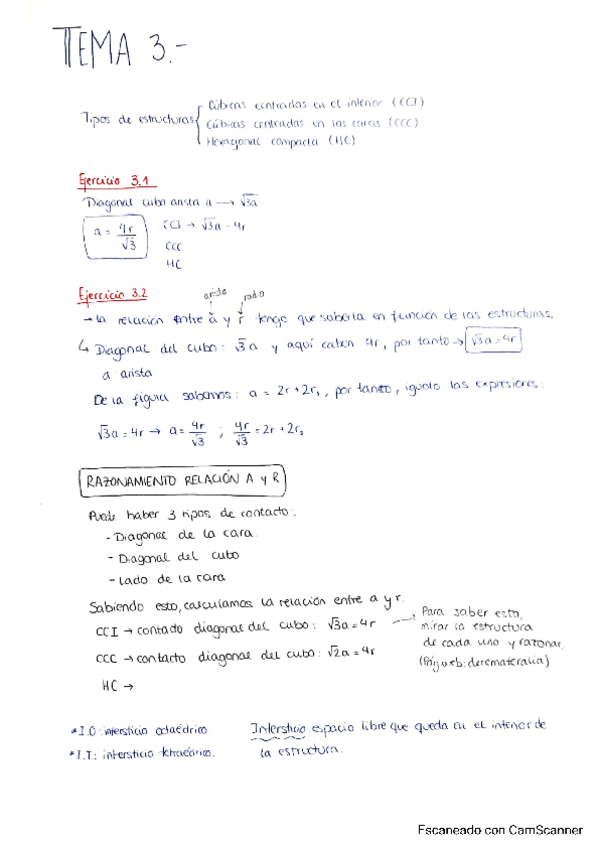 TEMA 3.-
Cúbicas centradas en el interior (CCI)
Tipos de estructuras
Cúbicas centradas en las caras (CCC)
Hexagonal compacta (HC)
Ejercicio 3.1
Diagonal cubo arista a → √3a
a = 4r/√3
CCI → √3a = 4r
CCC
HC
Ejercicio 3.2
arista radio
→ la relación entre a y r tengo que saberla en función de las estructuras.
↳ Diagonal del cubo: √3a y aquí caben 4r, por tanto → √3a = 4r
a arista
De la figura sabemos: a = 2r + 2rs, por tanto, igualo las expresiones:
√3a = 4r → a = 4r/√3 ; 4r/√3 = 2r + 2rs
RAZONAMIENTO RELACIÓN A y R
Puede haber 3 tipos de contacto:
- Diagonal de la cara.
- Diagonal del cubo
- Lado de la cara
Sabiendo esto, calculamos la relación entre a y r.
CCI → contacto diagonal del cubo: √3a = 4r
Para saber esto,
mirar la estructura
de cada uno y razonar.
CCC → contacto diagonal del cubo: √2a = 4r
HC →
*I.O: intersticio octaédrico.
Intersticio: espacio libre que queda en el interior de
*I.T: intersticio tetraédrico.
la estructura.
Escaneado con CamScanner